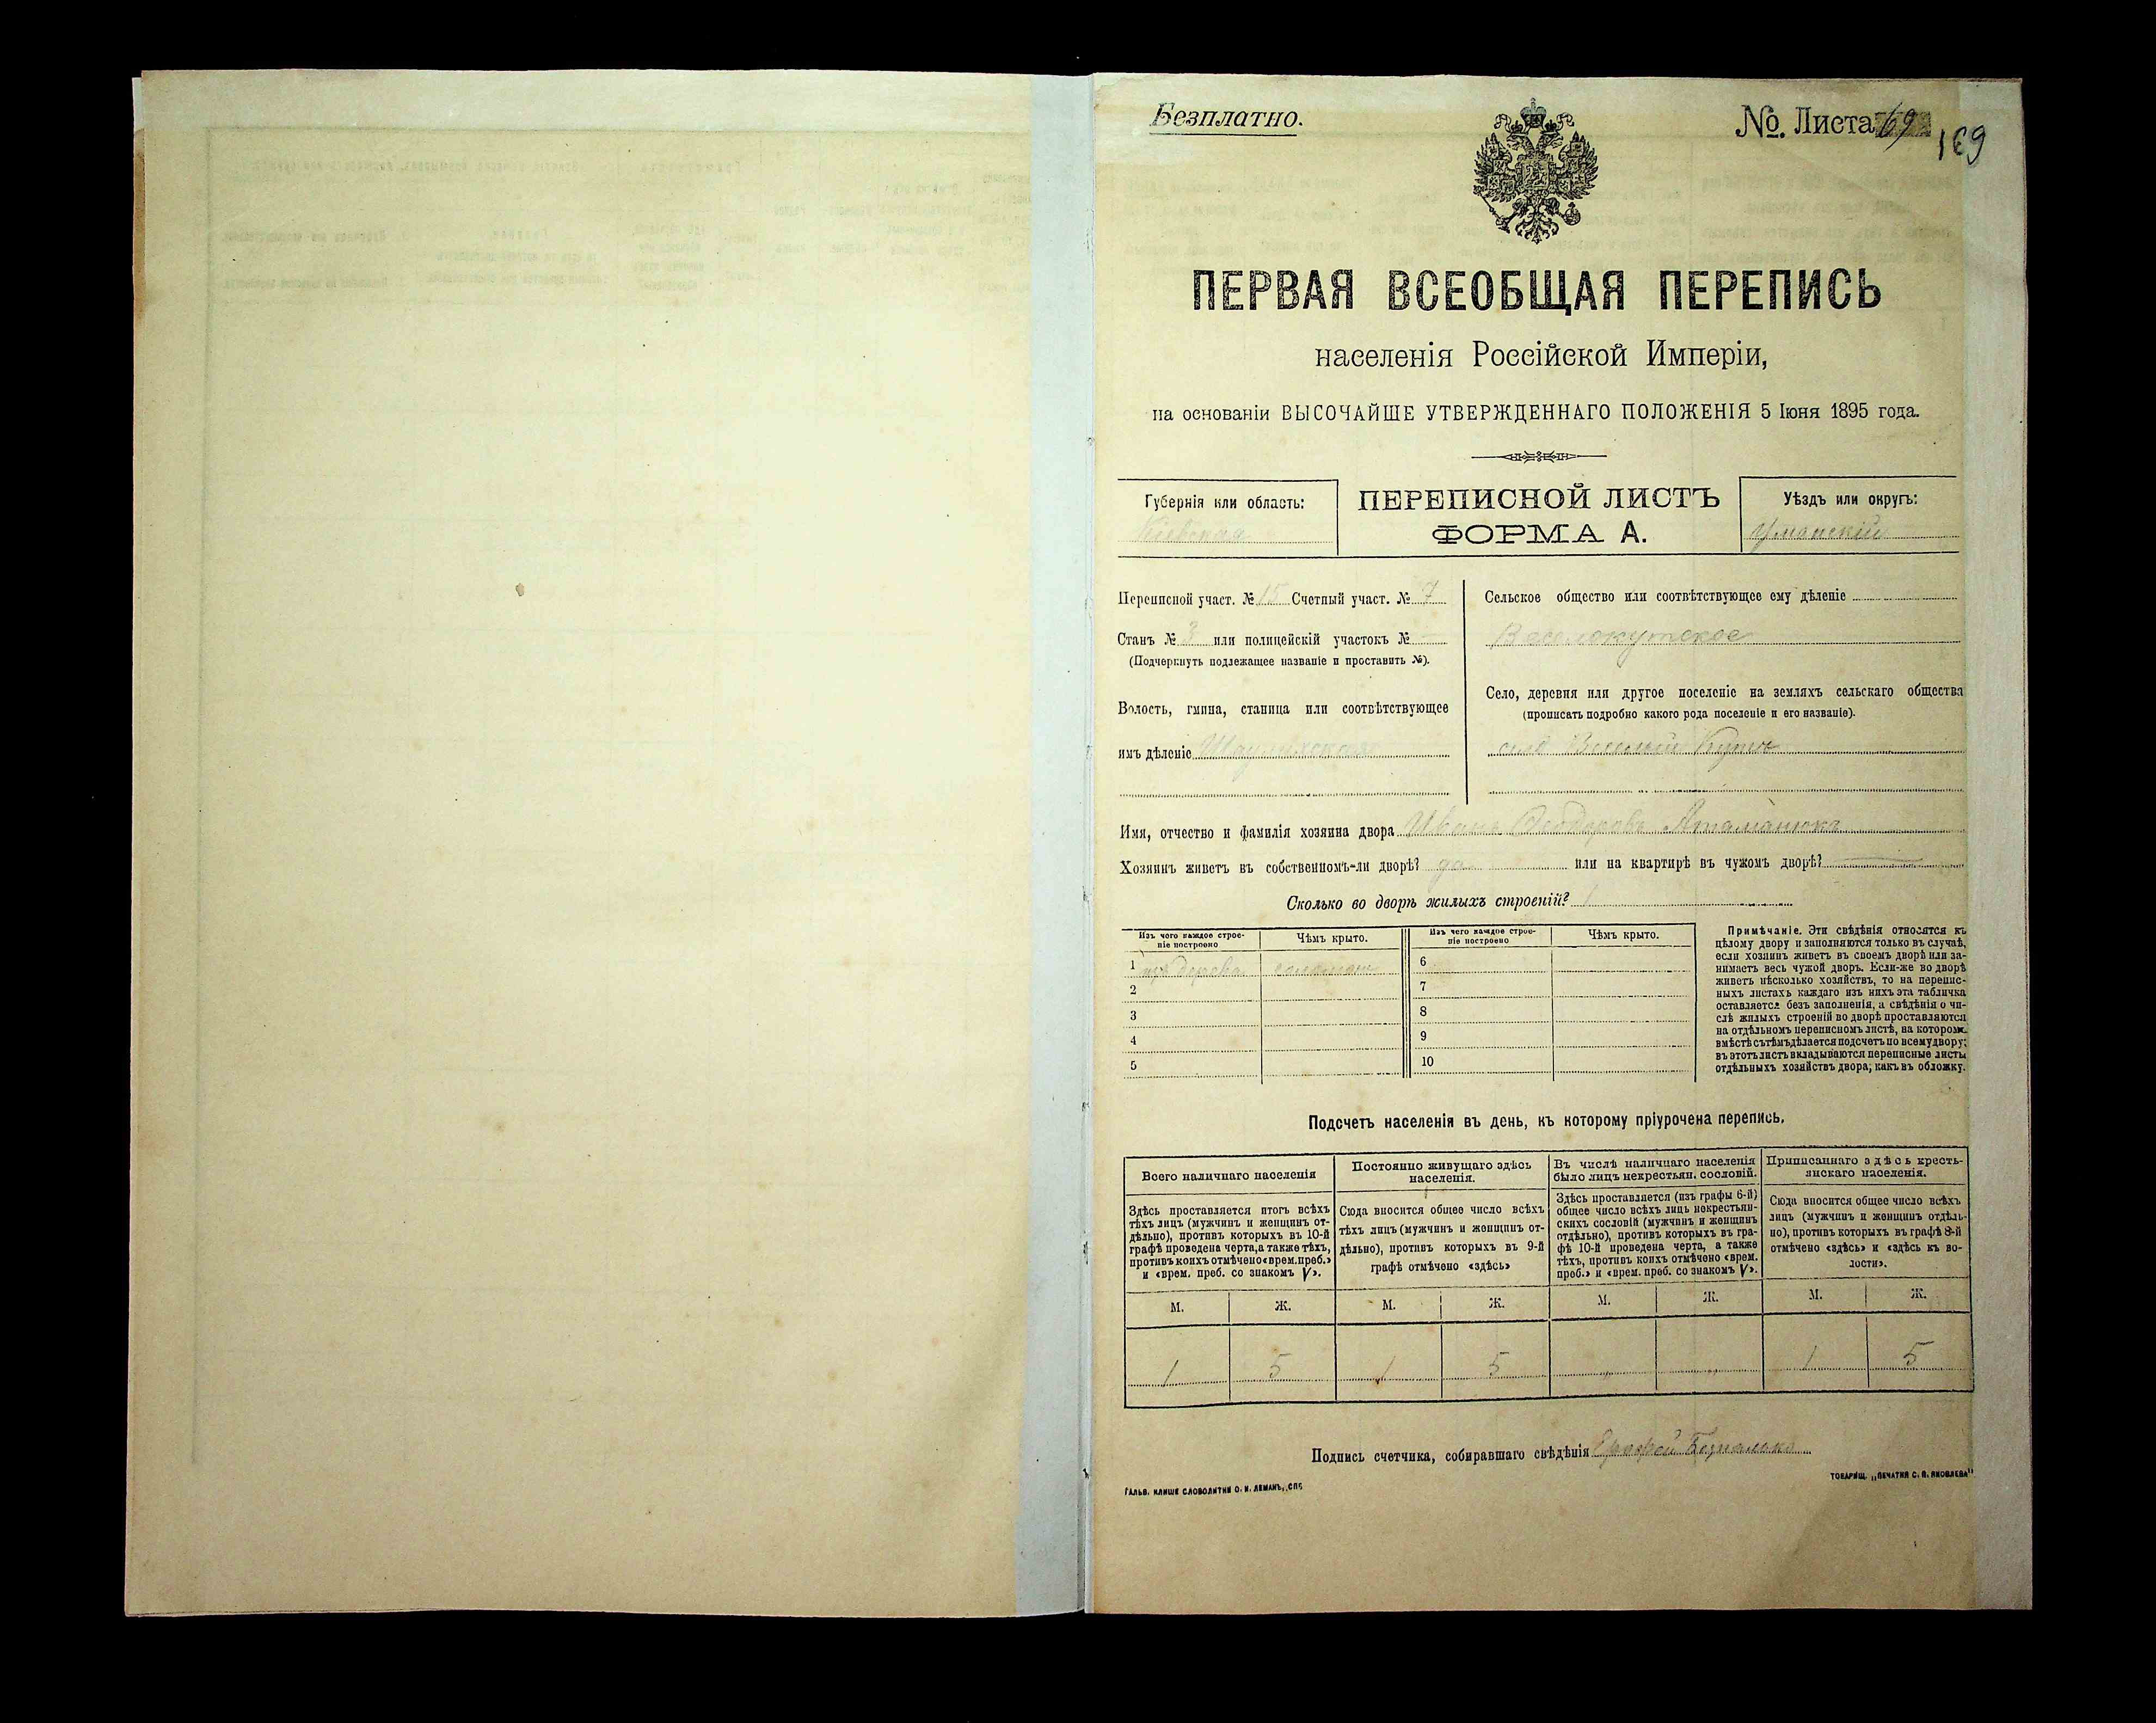 Безплатно.
№. Листа 69
169
ПЕРВАЯ ВСЕОБЩАЯ ПЕРЕПИСЬ
населенія Россійской Имперіи,
на основаніи ВЫСОЧАЙШЕ УТВЕРЖДЕННАГО ПОЛОЖЕНІЯ 5 Іюня 1895 года.
Губернія или область:
Кіевская
ПЕРЕПИСНОЙ ЛИСТЪ
ФОРМА А.
Уѣздъ или округъ:
Уманскій
Переписной участ. № 15 Счетный участ. № 7
Станъ № 3 или полицейскій участокъ №
(Подчеркнуть подлежащее названіе и проставить №).
Волость, гмина, станица или соотвѣтствующее
имъ дѣленіе
Сельское общество или соотвѣтствующее ему дѣленіе
Веселокутское
Село, деревня или другое поселеніе на земляхъ сельскаго общества
(прописать подробно какого рода поселеніе и его названіе).
село Веселый Кутъ
Имя, отчество и фамилія хозяина двора Иванъ Ѳеодоровъ Атаманюкъ
Хозяинъ живетъ въ собственномъ-ли дворѣ? да или на квартирѣ въ чужомъ дворѣ? —
Сколько во дворѣ жилыхъ строеній? 1
Изъ чего каждое строе-
ніе построено
Чѣмъ крыто.
Изъ чего каждое строе-
ніе построено
Чѣмъ крыто.
1 изъ дерева соломою
2
3
4
5
6
7
8
9
10
Примѣчаніе. Эти свѣдѣнія относятся къ
цѣлому двору и заполняются только въ случаѣ,
если хозяинъ живетъ въ своемъ дворѣ или за-
нимаетъ весь чужой дворъ. Если-же во дворѣ
живетъ нѣсколько хозяйствъ, то на перепис-
ныхъ листахъ каждаго изъ нихъ эта табличка
оставляется безъ заполненія, а свѣдѣнія о чи-
слѣ жилыхъ строеній во дворѣ проставляются
на отдѣльномъ переписномъ листѣ, на которомъ
вмѣстѣ съ тѣмъ дѣлается подсчетъ по всему двору;
въ этотъ листъ вкладываются переписные листы
отдѣльныхъ хозяйствъ двора, какъ въ обложку.
Подсчетъ населенія въ день, къ которому пріурочена перепись.
Всего наличнаго населенія
Здѣсь проставляется итогъ всѣхъ
тѣхъ лицъ (мужчинъ и женщинъ от-
дѣльно), противъ которыхъ въ 10-й
графѣ проведена черта, а также тѣхъ,
противъ коихъ отмѣчено «врем. преб.»
и «врем. преб. со знакомъ V».
Постоянно живущаго здѣсь
населенія.
Сюда вносится общее число всѣхъ
тѣхъ лицъ (мужчинъ и женщинъ от-
дѣльно), противъ которыхъ въ 9-й
графѣ отмѣчено «здѣсь»
Въ числѣ наличнаго населенія
было лицъ некрестьян. сословій.
Здѣсь проставляется (изъ графы 6-й)
общее число всѣхъ лицъ некрестьян-
скихъ сословій (мужчинъ и женщинъ
отдѣльно), противъ которыхъ въ гра-
фѣ 10-й проведена черта, а также
тѣхъ, противъ коихъ отмѣчено «врем.
преб.» и «врем. преб. со знакомъ V».
Приписаннаго здѣсь кресть-
янскаго населенія.
Сюда вносится общее число всѣхъ
лицъ (мужчинъ и женщинъ отдѣль-
но), противъ которыхъ въ графѣ 8-й
отмѣчено «здѣсь» и «здѣсь къ во-
лости».
М. Ж. М. Ж. М. Ж. М. Ж.
1 5 1 5 1 5
Подпись счетчика, собиравшаго свѣдѣнія
ГАЛЬВ. КЛИШЕ СЛОВОЛИТНИ О. И. ЛЕМАНЪ, СПБ
ТОВАРИЩ. „ПЕЧАТНЯ С. П. ЯКОВЛЕВА"